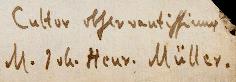 Cultor observantissimus
M. Joh. Henr. Müller.